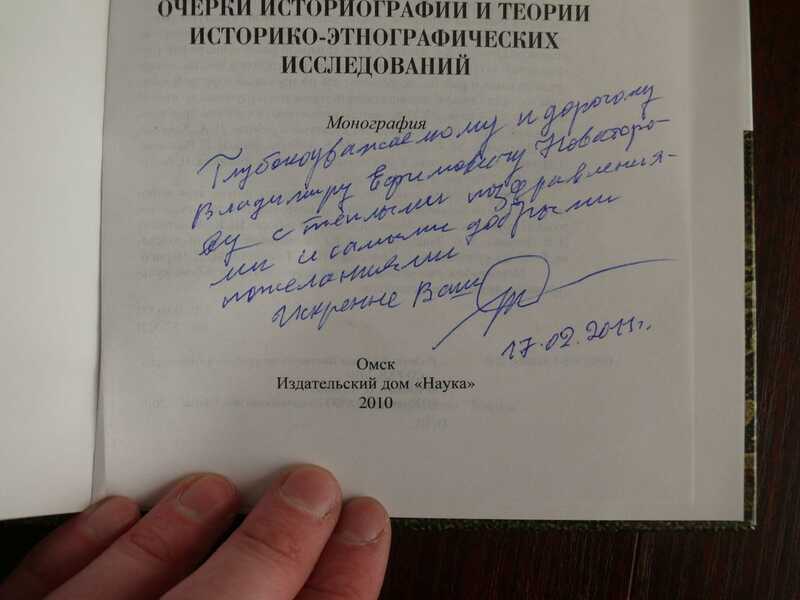 ОЧЕРКИ ИСТОРИОГРАФИИ И ТЕОРИИ
ИСТОРИКО-ЭТНОГРАФИЧЕСКИХ
ИССЛЕДОВАНИЙ
Монография
Глубокоуважаемому и дорогому
Владимиру Ефимовичу Новаторо-
ву с тёплыми поздравления-
ми и самыми добрыми
пожеланиями
Искренне Ваш
17.02.2011г.
Омск
Издательский дом «Наука»
2010